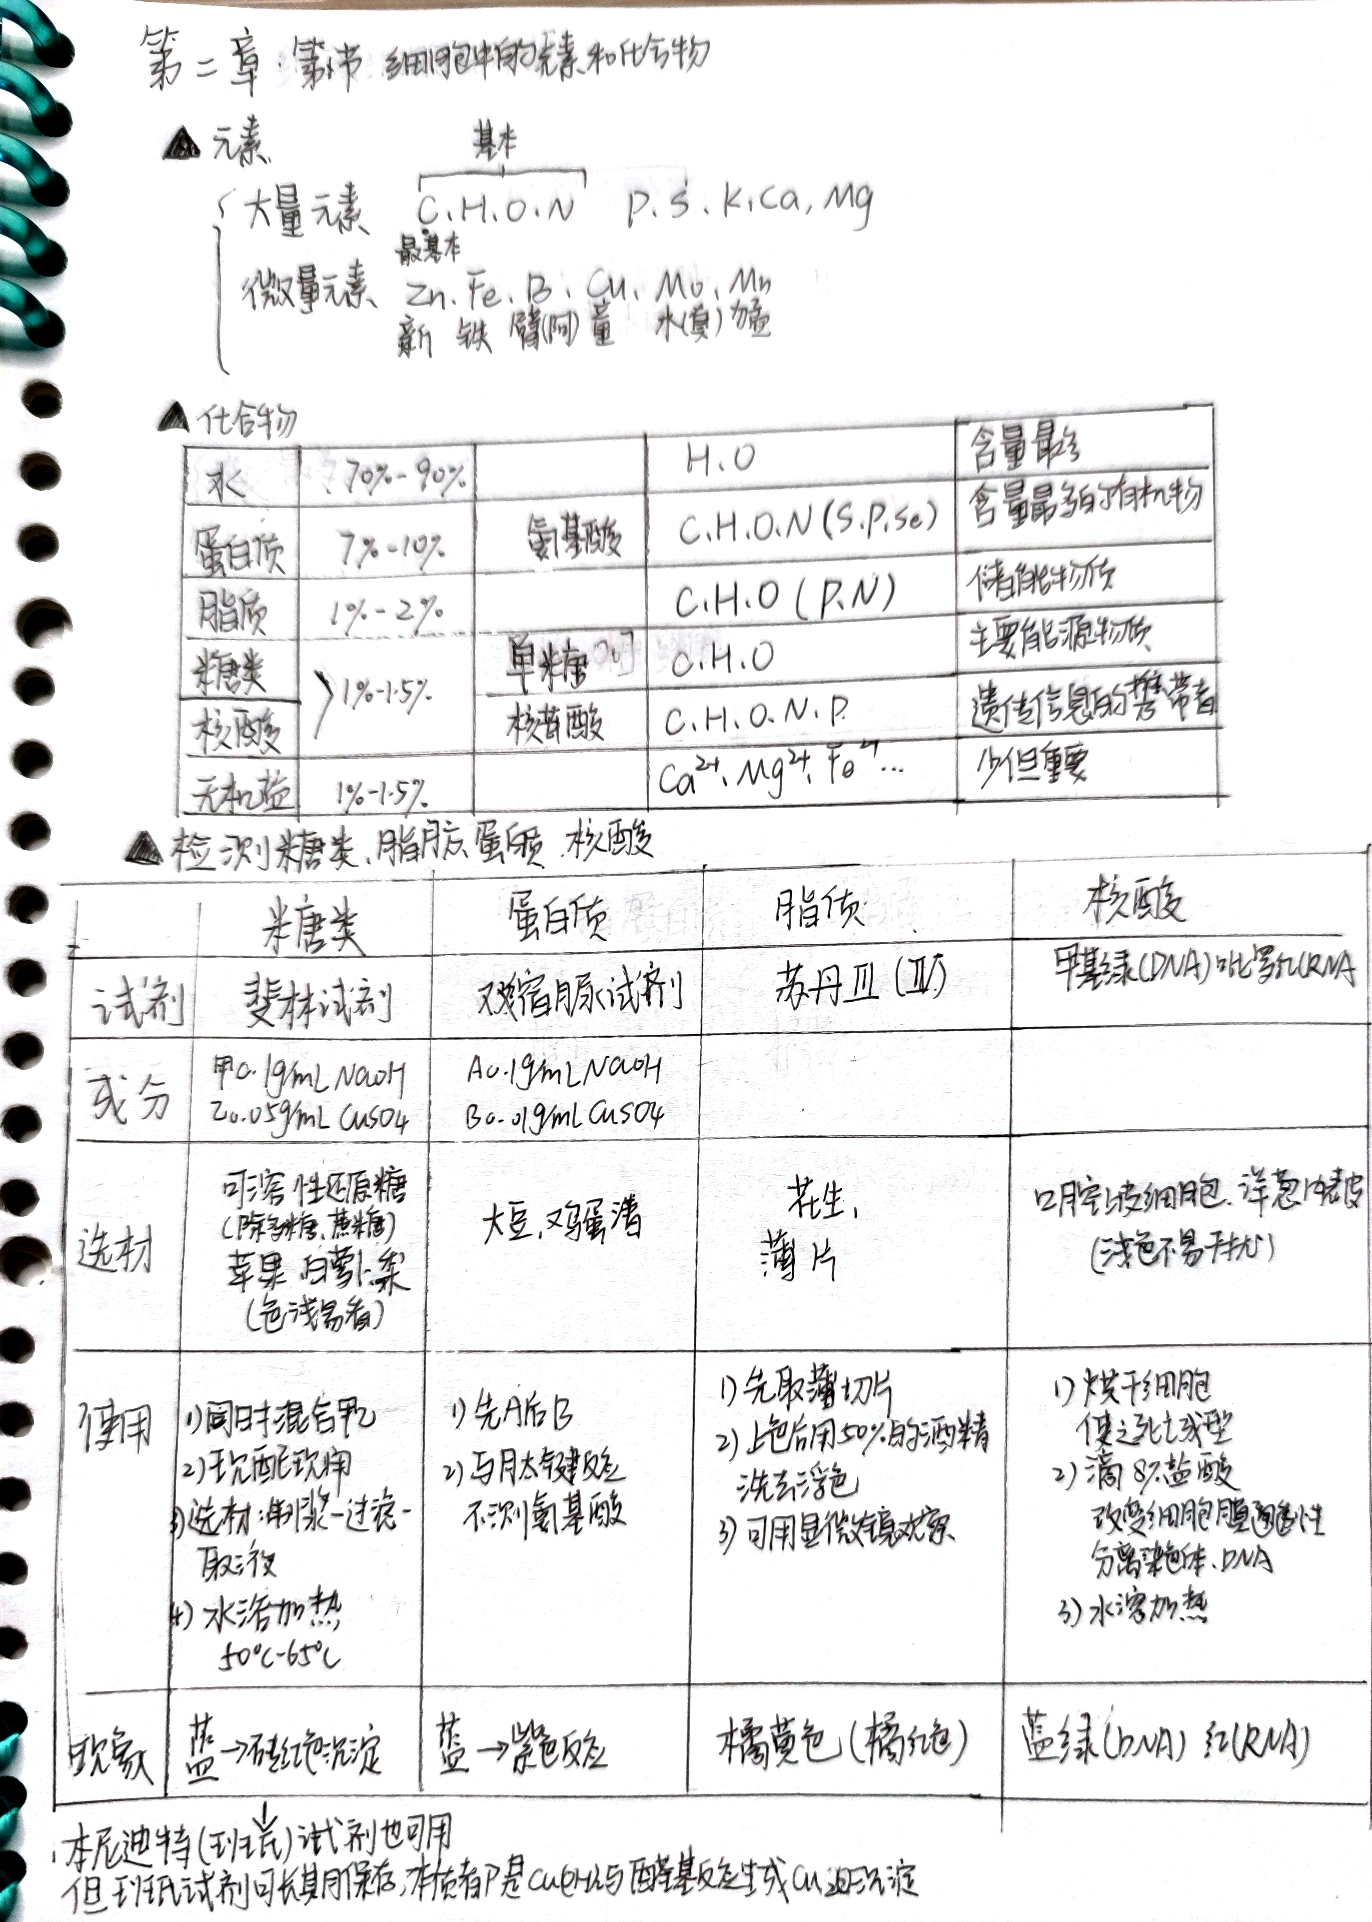 第二章 第1节 细胞中的元素和化合物
▲ 元素
基本
大量元素 C.H.O.N P.S.K.Ca,Mg
最基本
微量元素 Zn.Fe.B.Cu.Mo.Mn
新 铁 臂(阿) 童 木(真) 猛
▲ 化合物
水 70%-90% H.O 含量最多
蛋白质 7%-10% 氨基酸 C.H.O.N(S.P.Se) 含量最多的有机物
脂质 1%-2% C.H.O(P.N) 储能物质
糖类 1%-1.5% 单糖 C.H.O 主要能源物质
核酸 核苷酸 C.H.O.N.P. 遗传信息的携带者
无机盐 1%-1.5% Ca²⁺、Mg²⁺、Fe²⁺... 少但重要
▲ 检测糖类、脂肪、蛋白质、核酸
糖类 蛋白质 脂质 核酸
试剂 斐林试剂 双缩脲试剂 苏丹III(IV) 甲基绿(DNA)吡罗红(RNA
成分
甲0.1g/mL NaOH A0.1g/mL NaOH
乙0.05g/mL CuSO4 B0.01g/mL CuSO4
选材
可溶性还原糖
(除多糖、蔗糖)
苹果 白萝卜 梨
(色浅易看)
大豆、鸡蛋清
花生,
薄片
口腔上皮细胞、洋葱内表皮
(浅色不易干扰)
使用
1)同时混合甲乙
2)现配现用
3)选材:制浆-过滤-
取液
4)水浴加热
50℃-65℃
1)先A后B
2)与肽键反应
不测氨基酸
1)先取薄切片
2)上色后用50%的酒精
洗去浮色
3)可用显微镜观察
1)烘干细胞
使之死亡成型
2)滴8%盐酸
改变细胞膜通透性
分离染色体、DNA
3)水浴加热
现象 蓝→砖红色沉淀 蓝→紫色反应 橘黄色(橘红色) 蓝绿(DNA) 红(RNA)
本尼迪特(班氏)试剂也可用
但班氏试剂可长期保存,本质都是Cu(OH)2与醛基反应生成Cu2O沉淀